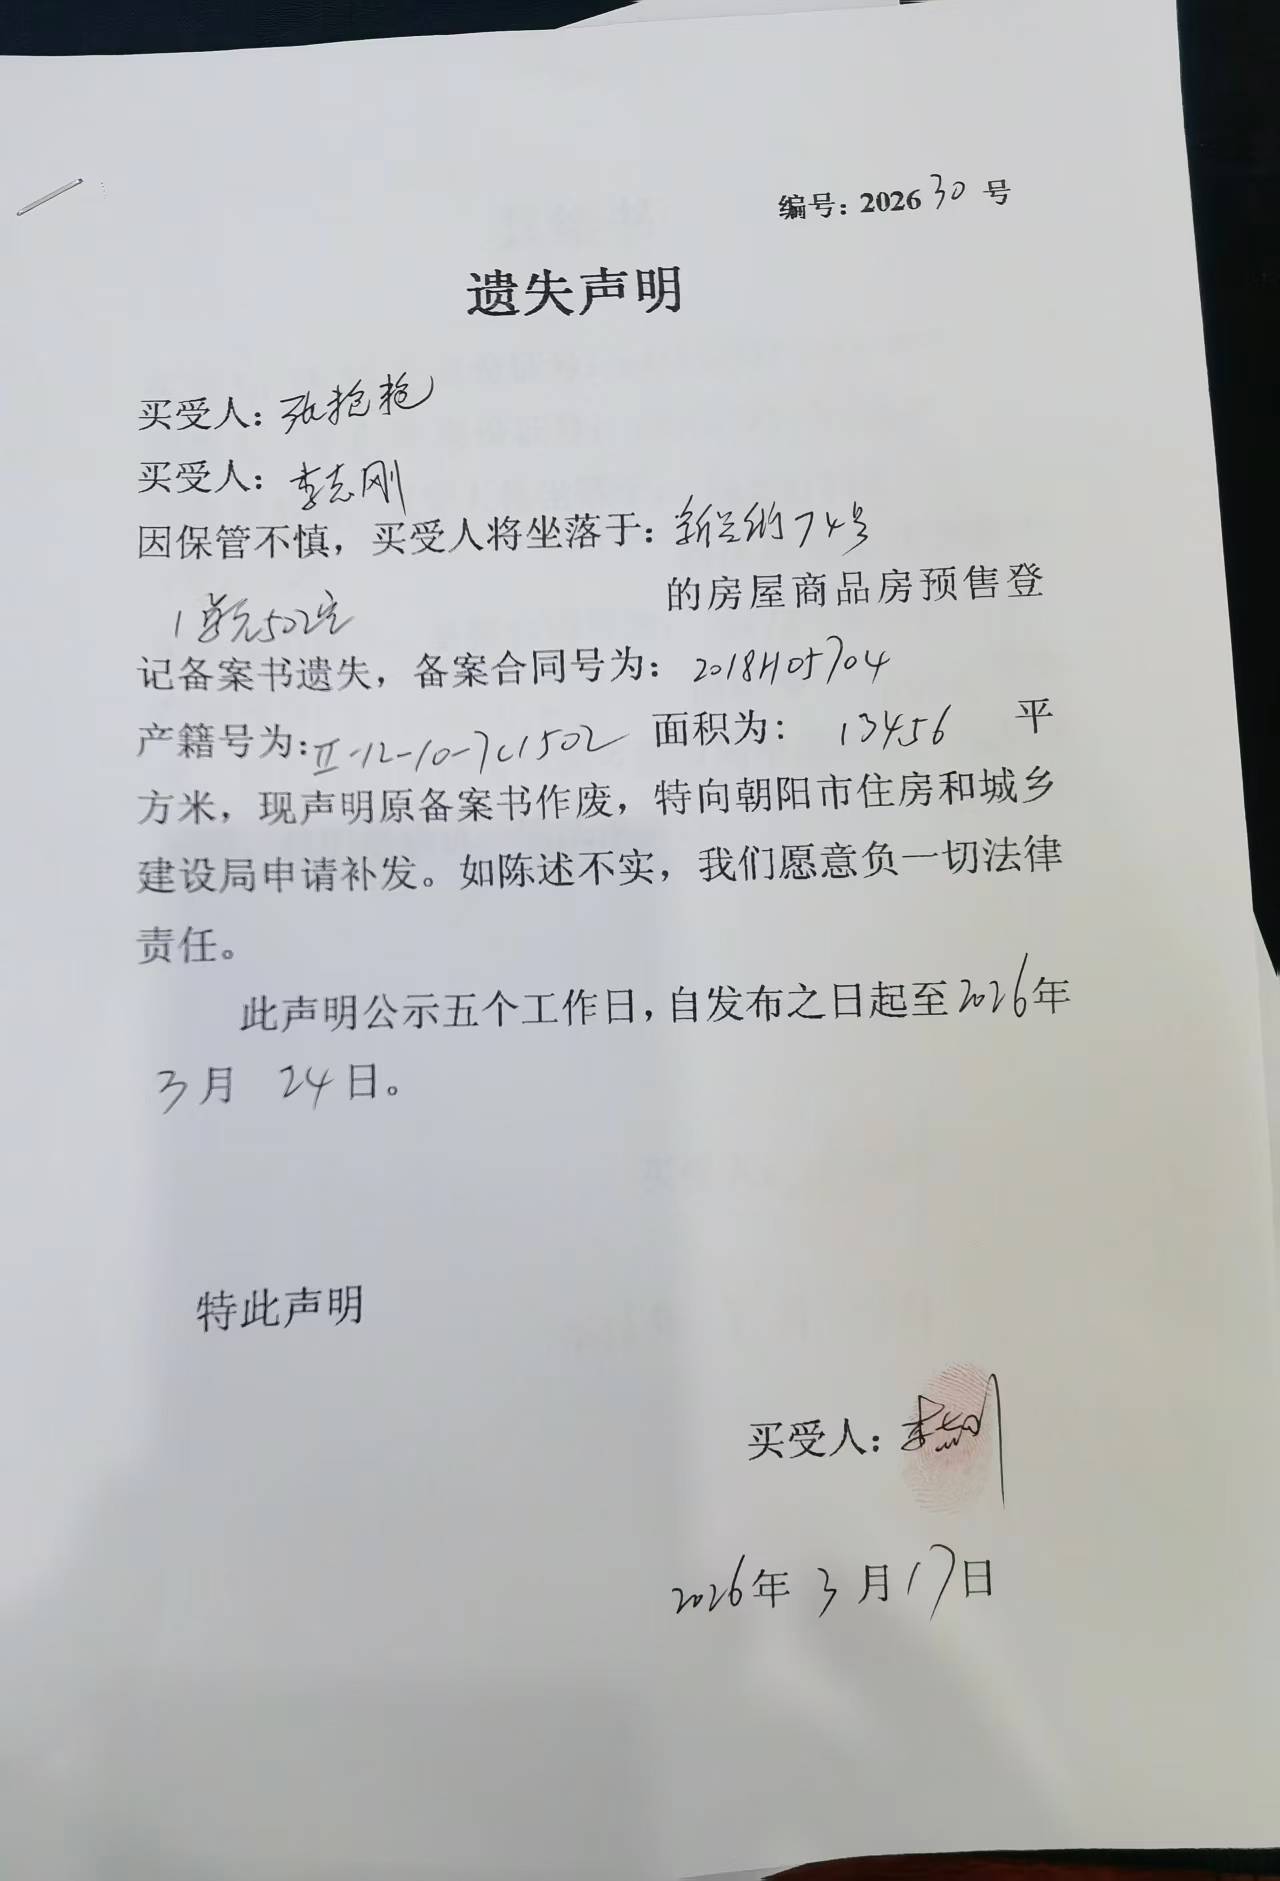 编号：2026 30 号
遗失声明
买受人：张艳艳
买受人：李志刚
因保管不慎，买受人将坐落于：新兴街74号
1单元502室 的房屋商品房预售登
记备案书遗失，备案合同号为：2018H05704
产籍号为：Ⅱ-12-10-7C1502 面积为：134.56 平
方米，现声明原备案书作废，特向朝阳市住房和城乡
建设局申请补发。如陈述不实，我们愿意负一切法律
责任。
此声明公示五个工作日，自发布之日起至2026年
3月 24日。
特此声明
买受人：李志刚
2026年 3月17日